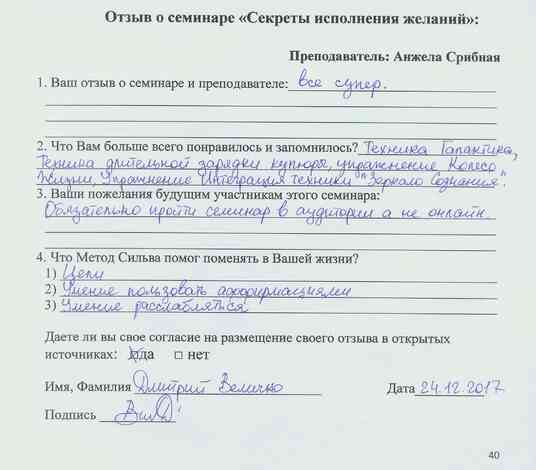 Отзыв о семинаре «Секреты исполнения желаний»:
Преподаватель: Анжела Срибная
1. Ваш отзыв о семинаре и преподавателе: все супер.
2. Что Вам больше всего понравилось и запомнилось? Техника Галактика,
Техника длительной зарядки купюры, упражнение Колесо
Жизни, Упражнение Интеграция техники "Зеркало Сознания".
3. Ваши пожелания будущим участникам этого семинара:
Обязательно пройти семинар в аудитории а не онлайн.
4. Что Метод Сильва помог поменять в Вашей жизни?
1) Цели
2) Умение пользовать аффирмациями
3) Умение расслабляться
Даете ли вы свое согласие на размещение своего отзыва в открытых
источниках: да нет
Имя, Фамилия Дмитрий Величко Дата 24.12.2017
Подпись
40